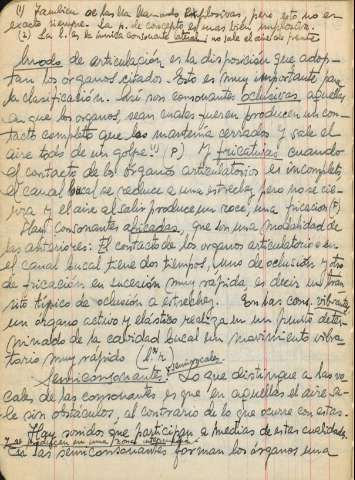 (1) También se las ha llamado explosivas, pero esto no es
exacto siempre. La p de concepto es más bien implosiva.
(2) La l. es la única consonante lateral; no sale el aire de frente
Modo de articulación es la disposición que adop-
tan los órganos citados. Esto es muy importante para
la clasificación. Así son consonantes oclusivas aquellas
en que los órganos, sean cuales quieran producen un con-
tacto completo que los mantenía cerrados y sale el
aire todo de un golpe (1) (P) Y fricativas cuando
el contacto de los órganos articulatorios es incompleto,
el canal bucal se reduce a una estrechez pero no se cie-
rra y el aire al salir produce un roce, una fricación (F)
Hay consonantes africadas, que son una modalidad de
las anteriores: El contacto de los organos articulatorios en
el canal bucal tiene dos tiempos, uno de oclusión y otro
de fricación en sucesión muy rápida, es decir un tran
sito típico de oclusión a estrechez. Son las cons. vibrantes
un órgano activo y elástico realiza en un punto deter-
minado de la cavidad bucal un movimiento vibra-
torio muy rápido (l r)
y semivocales
Semiconsonantes. Lo que distingue a las vo-
cales de las consonantes es que en aquellas el aire sa-
le sin obstáculos, al contrario de lo que ocurre con estas.
Hay sonidos que participan a medias de estas cualidades
y se producen en una zona intermedia.
En las semiconsonantes forman los órganos una